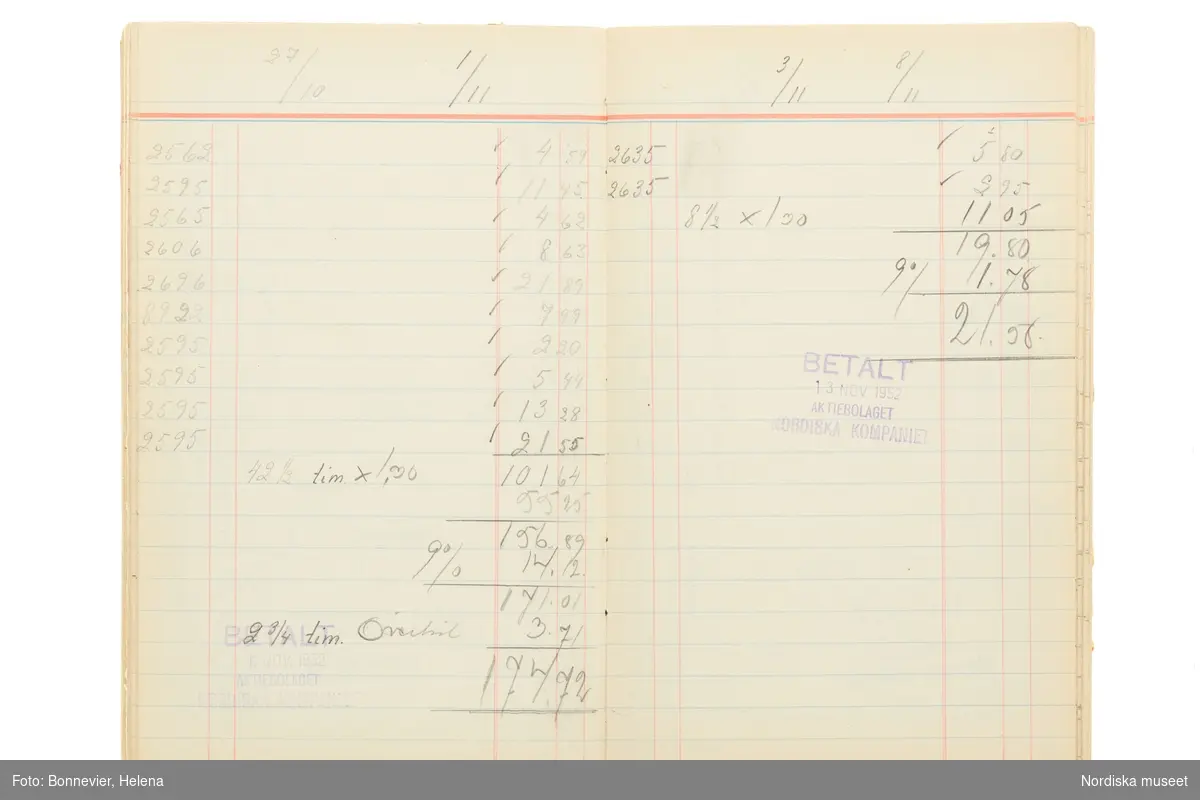 27/10 1/11
2562 ✓ 4 59
2595 ✓ 11 45
2565 ✓ 4 62
2606 ✓ 8 63
2696 ✓ 21 89
✓ 7 99
2595 ✓ 2 20
2595 ✓ 5 44
2595 ✓ 13 28
2595 ✓ 21 55
42 ½ tim. x 1,30 101 64
55 25
156.89
9% 14.12
171.01
2 3/4 tim. Övertid 3.71
174.72
BETALT
NOV. 1952
AKTIEBOLAGET
3/11 8/11
2635 ✓ 5 80
2635 ✓ 2 95
8 ½ x 1,30 11 05
19.80
9% 1.78
21.58
BETALT
13 NOV. 1952
AKTIEBOLAGET
NORDISKA KOMPANIET
Foto: Bonnevier, Helena
Nordiska museet